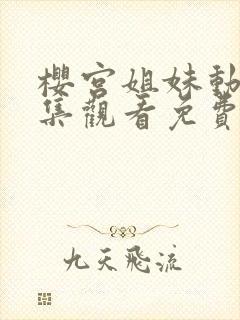 櫻宮姐妹動
集觀看免費
九天飛流